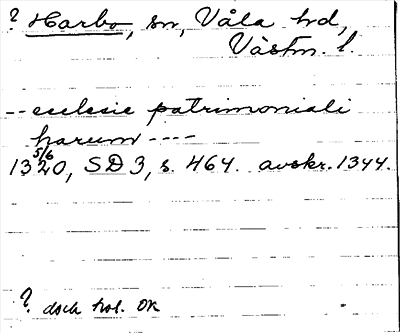 ? Harbo, sn, Våla hd,
Västm. l.
-- ecclesie patrimoniali
harum ----
13 5/6 20, SD 3, s. 464. avskr. 1344.
? dock hol. OK